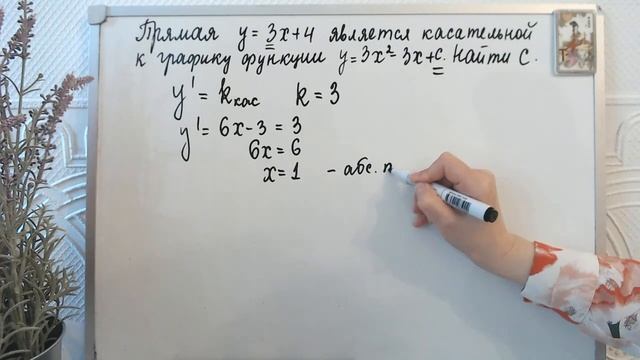 Прямая y = 3x+4 является касательной
к графику функции y = 3x² - 3x + c. Найти C.
y' = kкас k = 3
y' = 6x-3 = 3
6x = 6
x = 1 - абс. т